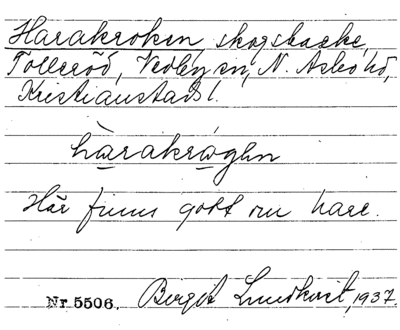 Harakroken, skogsbacke,
Tolleröd, Vedby sn, N. Åsbo hd,
Kristianstads l.
hàrakrógen
Här finns gott om hare.
Nr 5506. Birgit Lundkvist, 1937.